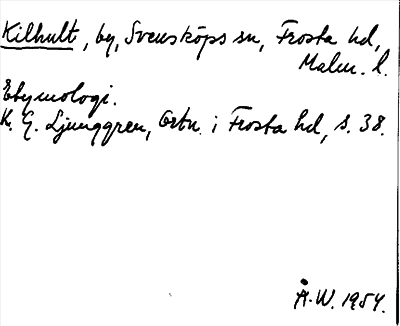 Kilhult, by, Svensköps sn, Frosta hd,
Malm. l.
Etymologi.
K. G. Ljunggren, Ortn. i Frosta hd, s. 38.
Å.W. 1954.